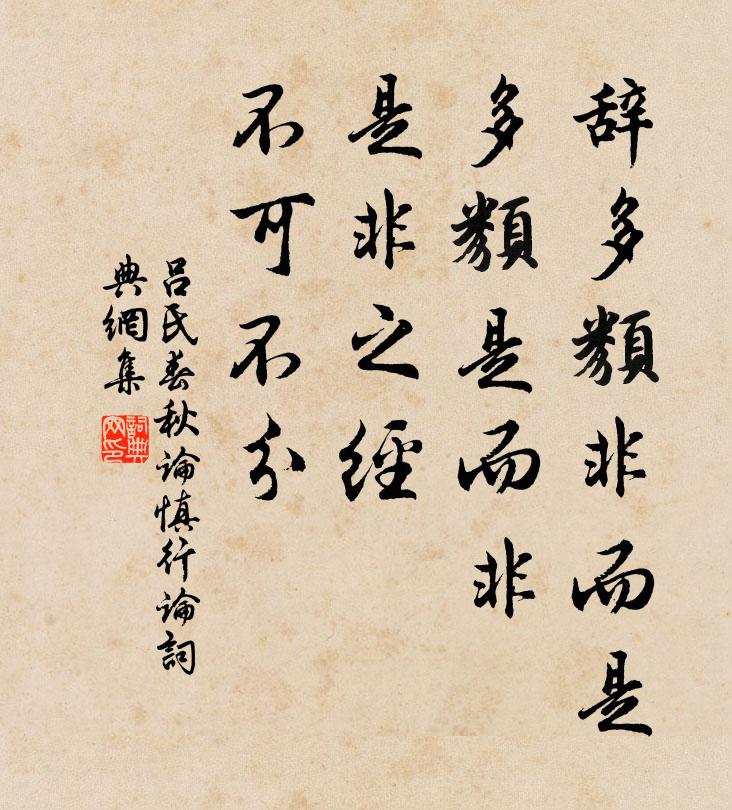 辞多類非而是
多類是而非
是非之經
不可不分
吕氏春秋論慎行論詞
典網集
詞典
网印